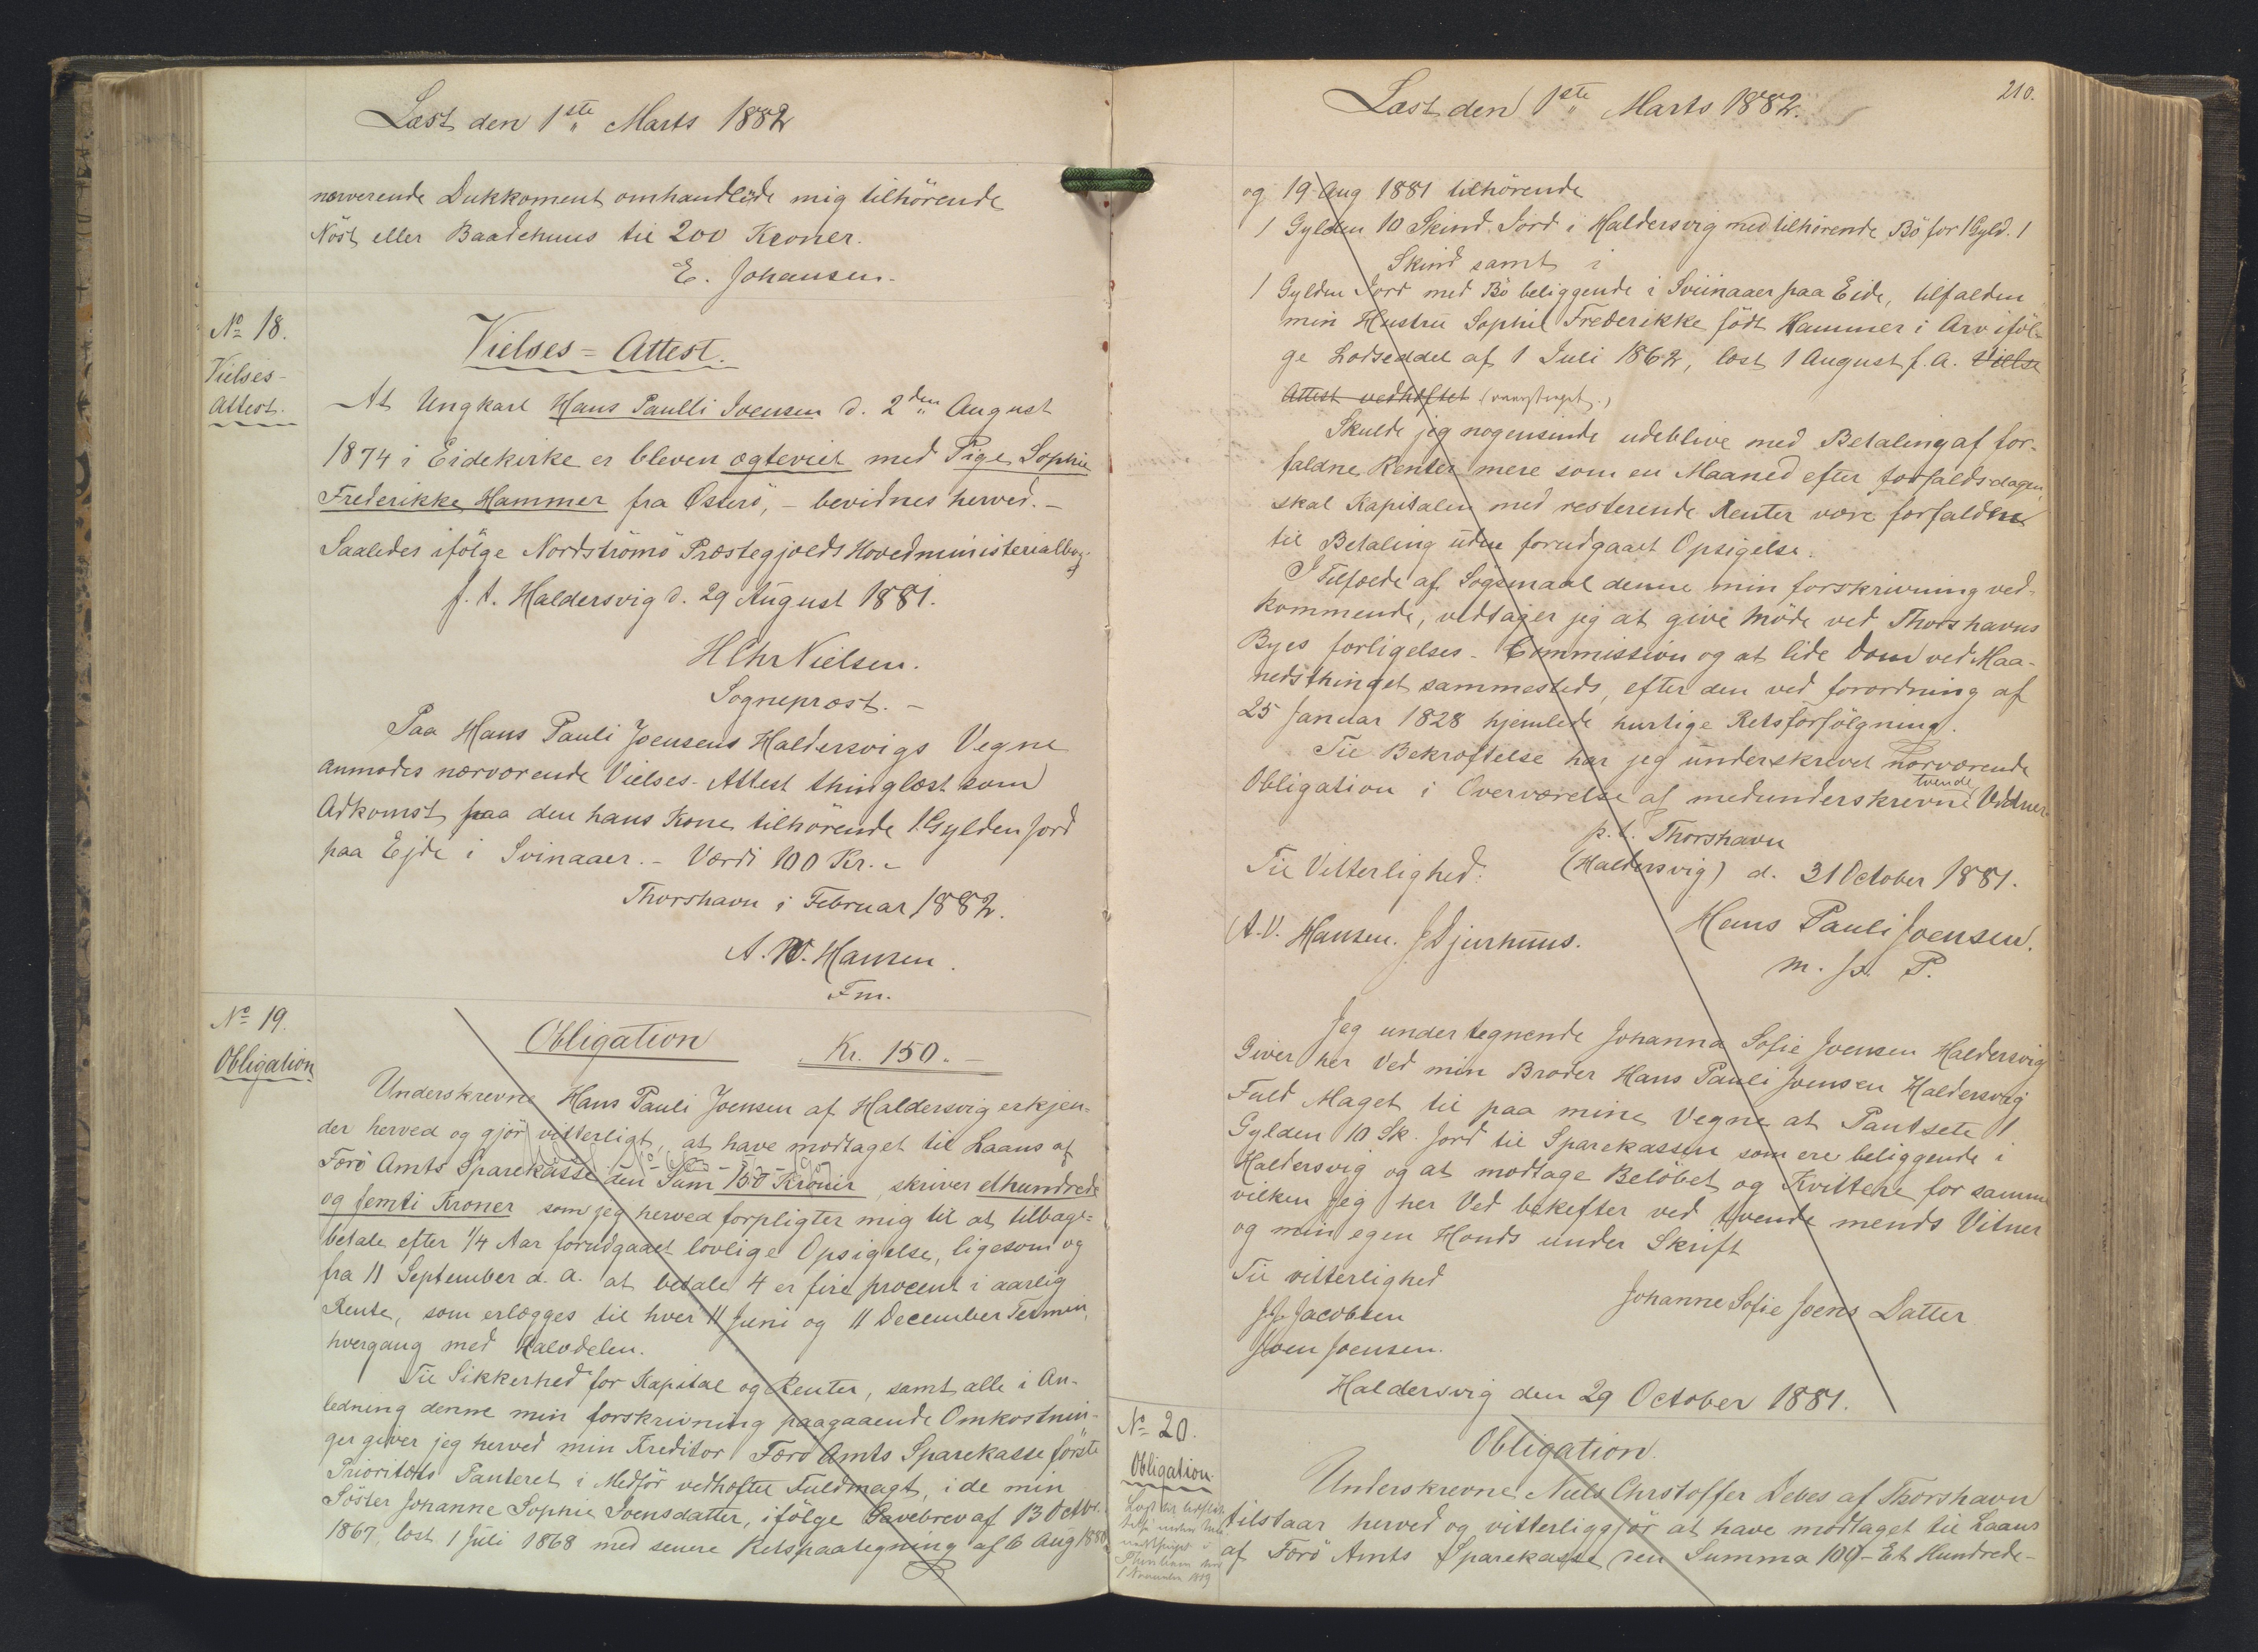 Læst den 1ste Marts 1882
nærverende Dukkoment omhandlede mig tilhörende
Nöst eller Baadehuus til 200 Kroner.
E. Johansen.
No 18.
Vielses-
Attest.
Vielses=Attest.
At Ungkarl Hans Paulli Joensen d. 2den August
1874 i Eidekirke er bleven ægteviet med Pige Sophie
Frederikke Hammer fra Österö, - bevidnes herved.-
Saaledes ifölge Nordströmö Præstegjælds Hovedministerialbog.
p. t. Haldersvig d. 29 August 1881.
HChrNielsen.
Sognepræst.-
Paa Hans Pauli Joensens Haldersvigs Vegne
anmodes nærværende Vielses-Attest thinglæst som
Adkomst paa den hans Kone tilhörende 1 Gylden Jord
paa Ejde i Svinaaer.- Værdi 100 Kr.-
Thorshavn i Februar 1882.
A. W. Hansen.
Fm.
No 19.
Obligation
Obligation Kr. 150.-
Underskrevne Hans Pauli Joensen af Haldersvig erkjen-
der herved og gjör vitterligt, at have modtaget til Laans af
Færö Amts Sparekasse den Sum 150 Kroner, skriver ethundrede
og femti Kroner som jeg herved forpligter mig til at tilbage=
betale efter 1/4 Aar forudgaaet lovlige Opsigelse, ligesom og
fra 11 September d. A. at betale 4 er fire procent i aarlig
Rente, som erlægges til hver 11 Juni og 11 December Termin,
hvergang med Halvdelen.
Til Sikkerhed for Kapital og Renter, samt alle i An-
ledning denne min forskrivning paagaaende Omkostnin-
ger giver jeg herved min Kreditor Færö Amts Sparekasse förste
Prioritets Panteret i Medför vedhæftet Fuldmagt, i de min
Söster Johanne Sophie Joensdatter, ifölge Gavebrev af 13 Octbr.
1867, læst 1 Juli 1868 med senere Retspaategning af 6 Aug 1880
210.
Læst den 1ste Marts 1882.
og 19 Aug 1881 tilhörende
1 Gylden 10 Skind Jord i Haldersvig med tilhörende Bö for 1 Gyld. 1
Skind samt i
1 Gylden Jord med Bö beliggende i Sviinaaer paa Eide, tilfalden
min Hustru Sophie Frederikke födt Hammer i Arv iföl-
ge Lodseddel af 1 Juli 1862, læst 1 August s. A. Vielse
Attest vedhæftet (overstreget.)
Skulde jeg nogensinde udeblive med Betaling af for-
faldne Renter mere som en Maaned efter forfaldsdagen,
skal Kapitalen med resterende Renter være forfalden
til Betaling uden forudgaaet Opsigelse.
I Tilfælde af Sögsmaal denne min forskrivning ved-
kommende, vedtager jeg at give Möde ved Thorshavns
Byes forligelses-Commission og at lide Dom ved Maa-
nedsthinget sammesteds, efter den ved forordning af
25 Januar 1828 hjemlede hurtige Retsforfölgning.
Til Bekræftelse har jeg underskrevet nærværende
Obligation i Overværelse af medunderskrevne tvende Vidner.
p. t. Thorshavn
Til Vitterlighed: (Haldersvig) d. 31 October 1881.
A. V. Hansen. J Djurhuus. Hans Pauli Joensen.
m. f. P.
Jeg undertegnende Johanna Sofie Joensen Haldersvig
Giver her Ved min Broder Hans Pauli Joensen Haldersvig
Fuld Maget til paa mine Vegne at Pantsete 1
Gylden 10 Sk. Jord til Sparekassen som ere beliggende i
Haldersvig og at modtage Belöbet og Kvittere for samme
vilken Jeg her Ved bekefter ved tvende mends Vitner
og min egen Honds under Skrift
Til vitterlighed
J.J. Jacobsen Johanne Sofie Joens Datter
Joen Joensen.
Haldersvig den 29 October 1881.
No 20.
Obligation.
Obligation.
Underskrevne Niels Chrstoffer Debes af Thorshavn
tilstaar herved og vitterliggjör at have modtaget til Laans
af Færö Amts Sparekasse den Summa 100 - Et Hundrede-
1 November 1889